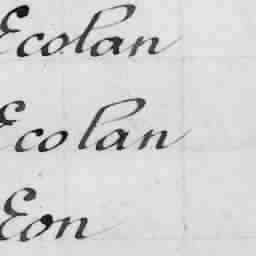 Ecolan
Ecolan
Eon